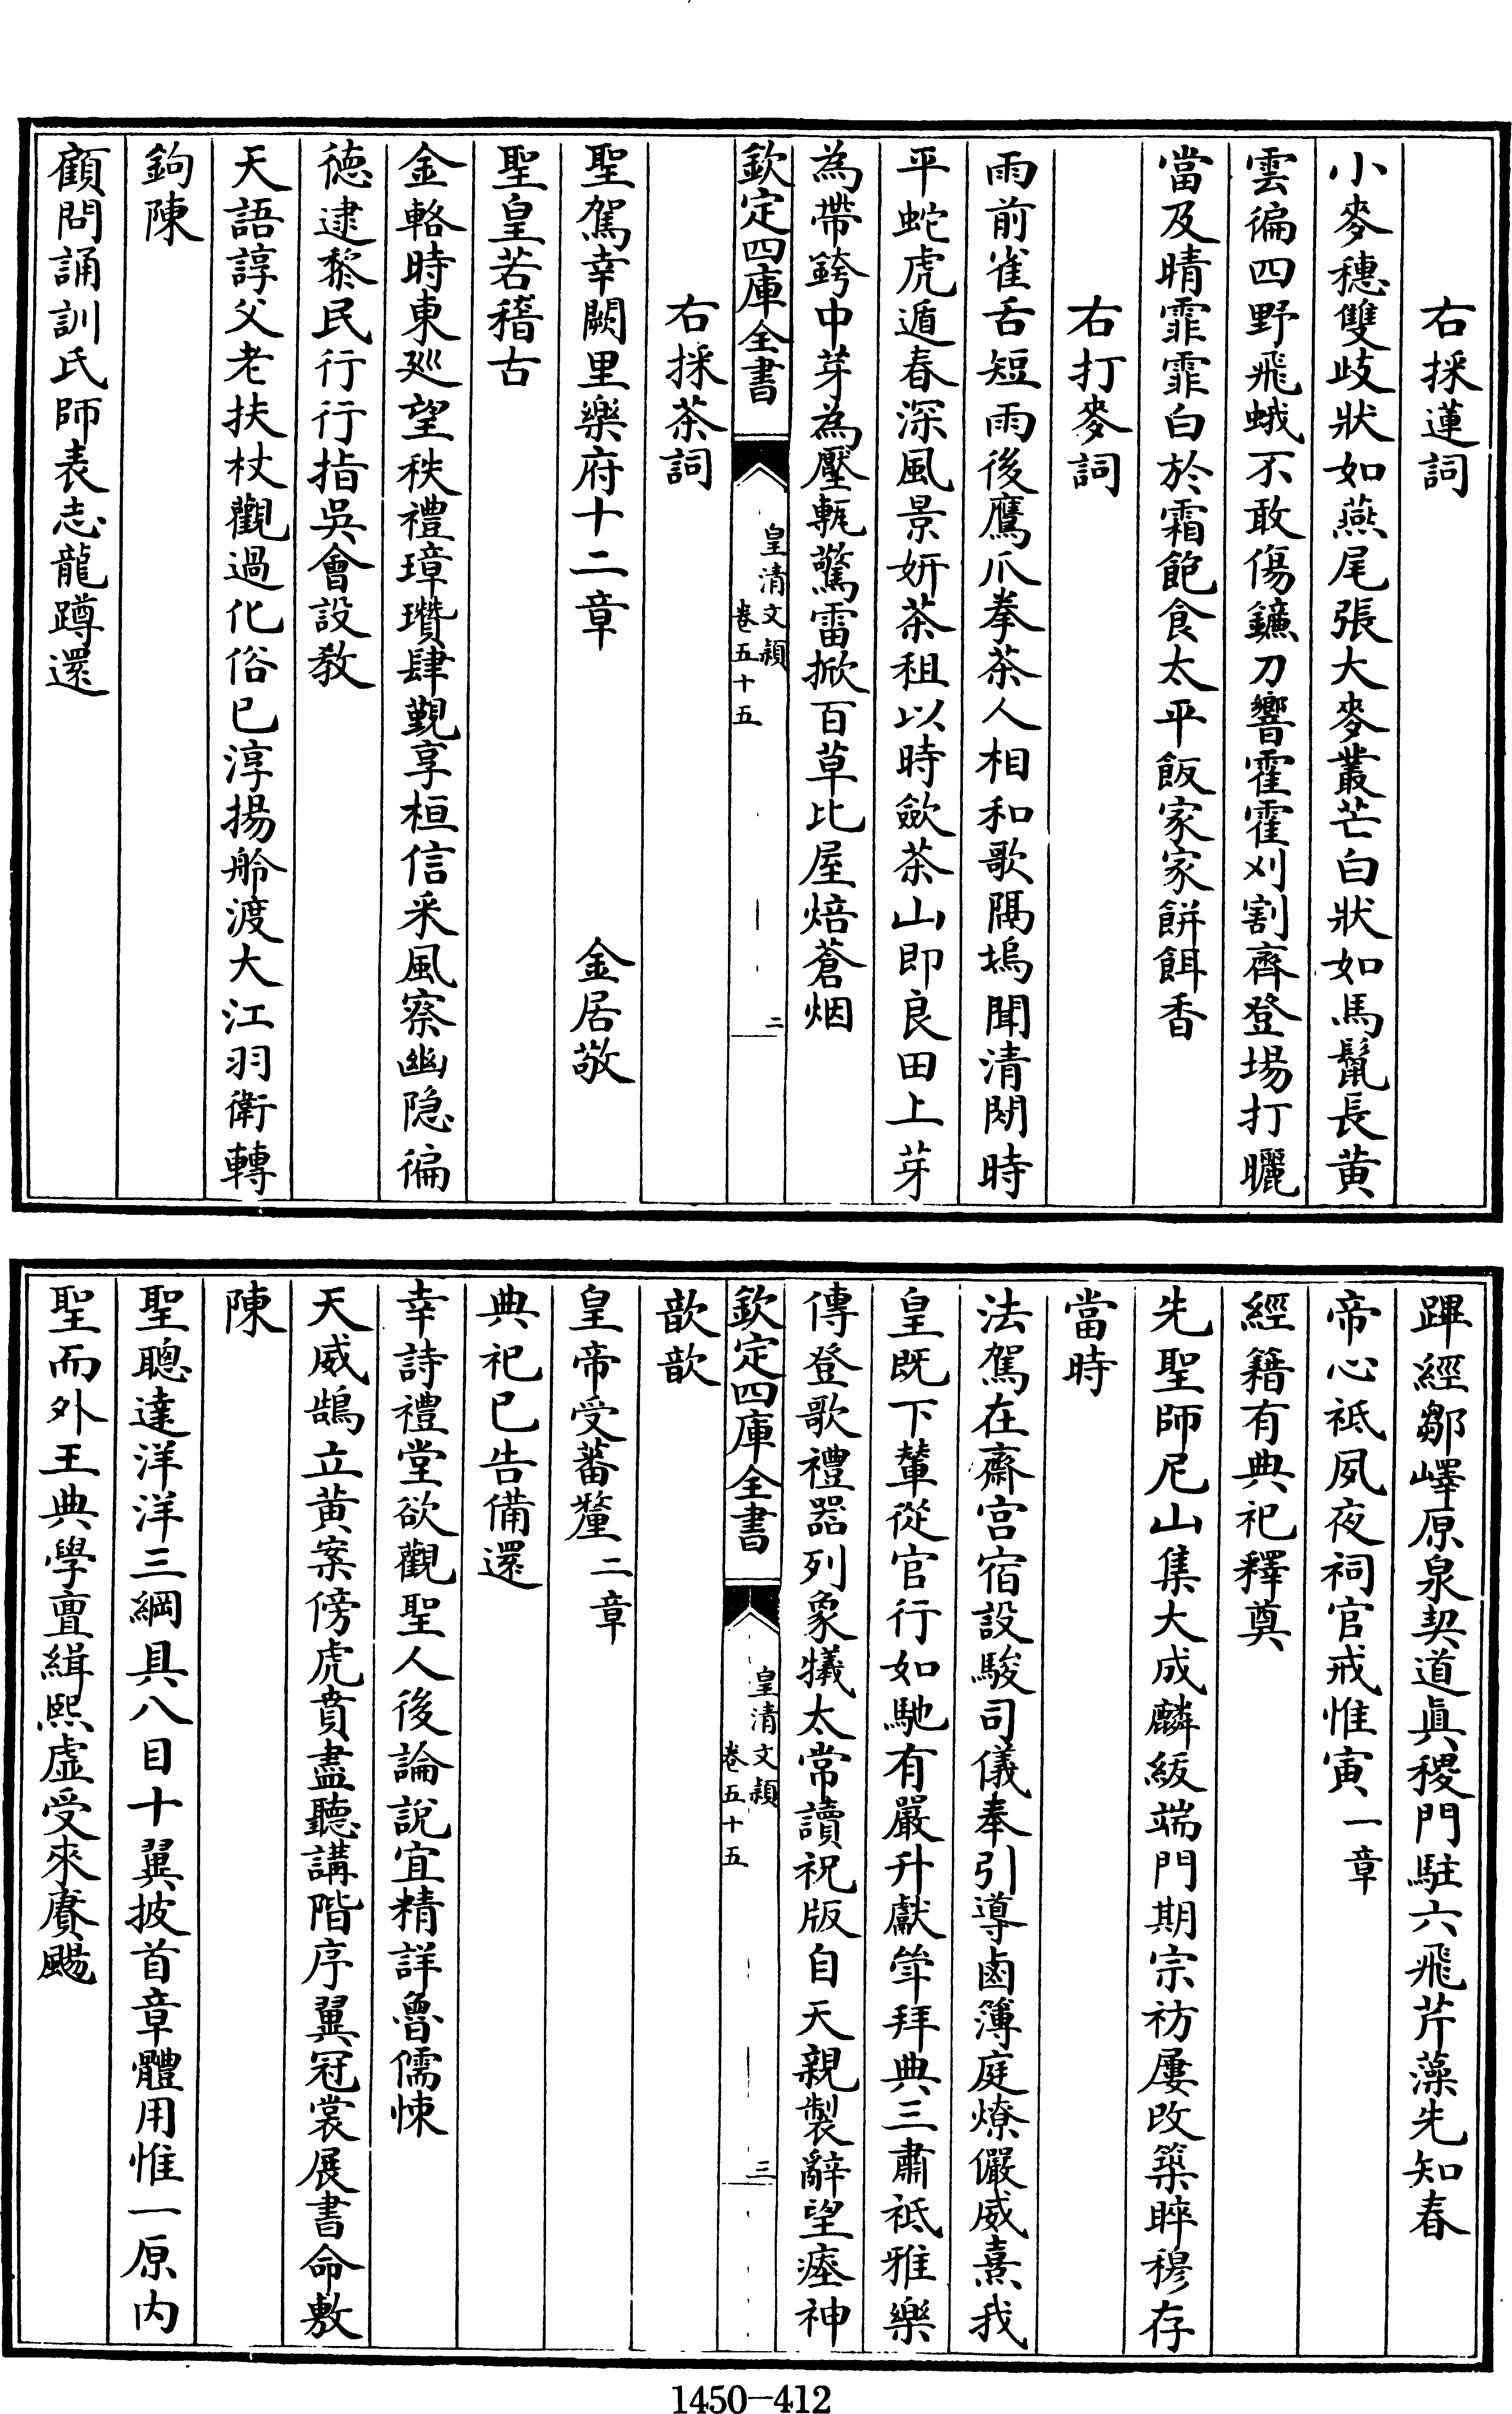 右採蓮詞
小麥穗雙歧狀如燕尾張大麥叢芒白狀如馬鬛長黃
雲徧四野飛蛾不敢傷鐮刀響霍霍刈割齊登場打曬
當及晴霏霏白於霜飽食太平飯家家餅餌香
右打麥詞
雨前雀舌短雨後鷹爪拳茶人相和歌隔塢聞清閒時
平蛇虎遁春深風景妍茶租以時斂茶山即良田上芽
為帶銙中芽為壓甎驚雷掀百草比屋焙蒼烟
欽定四庫全書
皇清文穎
卷五十五
二
右採茶詞
聖駕幸闕里樂府十二章 金居敬
聖皇若稽古
金輅時東廵望秩禮璋瓚肆覲享桓信釆風察幽隐徧
德逮黎民行行指吳會設教
天語諄父老扶杖觀過化俗已淳揚舲渡大江羽衛轉
鉤陳
顧問誦訓氏師表志龍蹲還
蹕經鄒嶧原泉契道眞稷門駐六飛芹藻先知春
帝心祗夙夜祠官戒惟寅一章
經籍有典祀釋奠
先聖師尼山集大成麟紱端門期宗祊屢改築睟穆存
當時
法駕在齋宫宿設駿司儀奉引導鹵簿庭燎儼威熹我
皇既下輦從官行如馳有嚴升獻斝拜典三肅祗雅樂
傳登歌禮器列象犧太常讀祝版自天親製辭望瘞神
欽定四庫全書
皇清文穎
卷五十五
三
歆歆
皇帝受蕃釐二章
典祀已告備還
幸詩禮堂欲觀聖人後論說宜精詳魯儒悚
天威鵠立黃案傍虎賁盡聽講階序翼冠裳展書命敷
陳
聖聰達洋洋三綱具八目十翼披首章體用惟一原内
聖而外王典學亶緝熙虛受來賡颺
1450—412